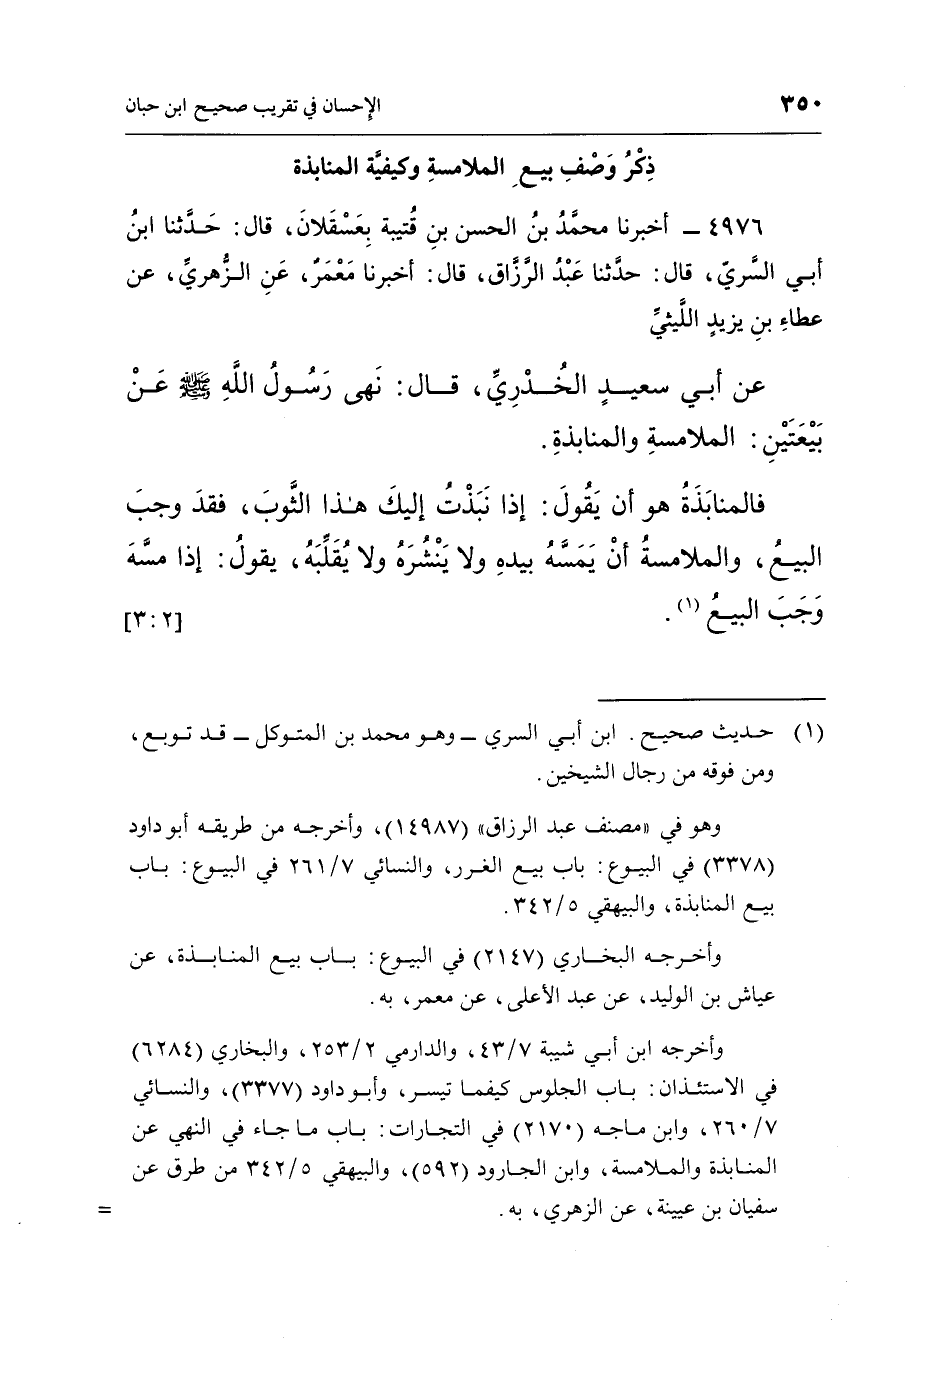 ٣٥٠ الإحسان في تقريب صحيح ابن حبان
ذِكْرُ وَصْفِ بيعِ الملامسةِ وكيفيَّة المنابذة
٤٩٧٦ ــ أخبرنا محمَّدُ بنُ الحسن بنِ قُتيبة بِعَسْقَلانَ، قال: حَدَّثنا ابنُ
أبي السَّريّ، قال: حدَّثنا عَبْدُ الرَّزَّاق، قال: أخبرنا مَعْمَرٌ، عَنِ الزُّهريِّ، عن
عطاءِ بنِ يزيدٍ اللَّيثيِّ
عن أبي سعيدٍ الخُدْرِيِّ، قال: نَهى رَسُولُ اللَّهِ ﷺ عَنْ
بَيْعَتَيْنِ: الملامسةِ والمنابذةِ.
فالمنابَذَةُ هو أن يَقُولَ: إذا نَبَذْتُ إليكَ هٰذا الثَّوبَ، فقدَ وجبَ
البيعُ، والملامسةُ أنْ يَمَسَّهُ بيدهِ ولا يَنْشُرَهُ ولا يُقَلِّبَهُ، يقولُ: إذا مسَّهَ
وَجَبَ البيعُ (١). [٣:٢]
(١) حديث صحيح. ابن أبي السري ــ وهو محمد بن المتوكل ــ قد توبع،
ومن فوقه من رجال الشيخين.
وهو في «مصنف عبد الرزاق» (١٤٩٨٧)، وأخرجه من طريقه أبو داود
(٣٣٧٨) في البيوع: باب بيع الغرر، والنسائي ٢٦١/٧ في البيوع: باب
بيع المنابذة، والبيهقي ٣٤٢/٥.
وأخرجه البخاري (٢١٤٧) في البيوع: باب بيع المنابذة، عن
عياش بن الوليد، عن عبد الأعلى، عن معمر، به.
وأخرجه ابن أبي شيبة ٤٣/٧، والدارمي ٢٥٣/٢، والبخاري (٦٢٨٤)
في الاستئذان: باب الجلوس كيفما تيسر، وأبو داود (٣٣٧٧)، والنسائي
٢٦٠/٧، وابن ماجه (٢١٧٠) في التجارات: باب ما جاء في النهي عن
المنابذة والملامسة، وابن الجارود (٥٩٢)، والبيهقي ٣٤٢/٥ من طرق عن
سفيان بن عيينة، عن الزهري، به. =